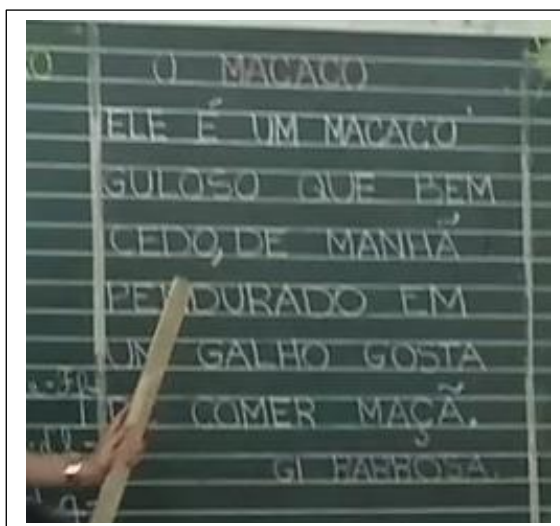 O MACACO
ELE É UM MACACO
GULOSO QUE BEM
CEDO, DE MANHÃ
PENDURADO EM
UM GALHO GOSTA
DE COMER MAÇÃ.
GI BARBOSA.